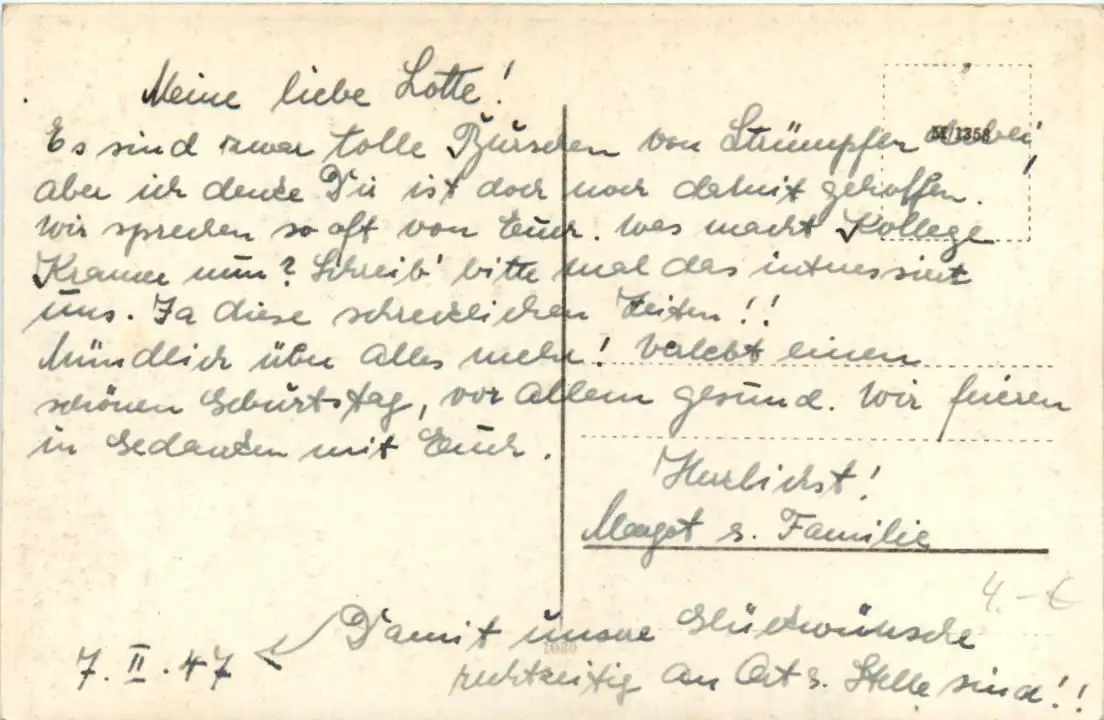 Meine liebe Lotte!
M/1358
Es sind zwar tolle Burschen von Strümpfen dabei,
aber ich denke Du ist doch noch damit geholfen.
Wir sprechen so oft von Euch. Was macht Kollege
Kramer nun? Schreib' bitte mal das interessiert
uns. Ja diese schrecklichen Zeiten!!
Mündlich über Alles mehr! Verlebt einen
schönen Geburtstag, vor Allem gesund. Wir feieren
in Gedanken mit Euch.
Herzlichst!
Margot s. Familie
4.- €
Damit unsere Glückwünsche
7.II.47
1080
rechtzeitig an Ort s. Stelle sind!!